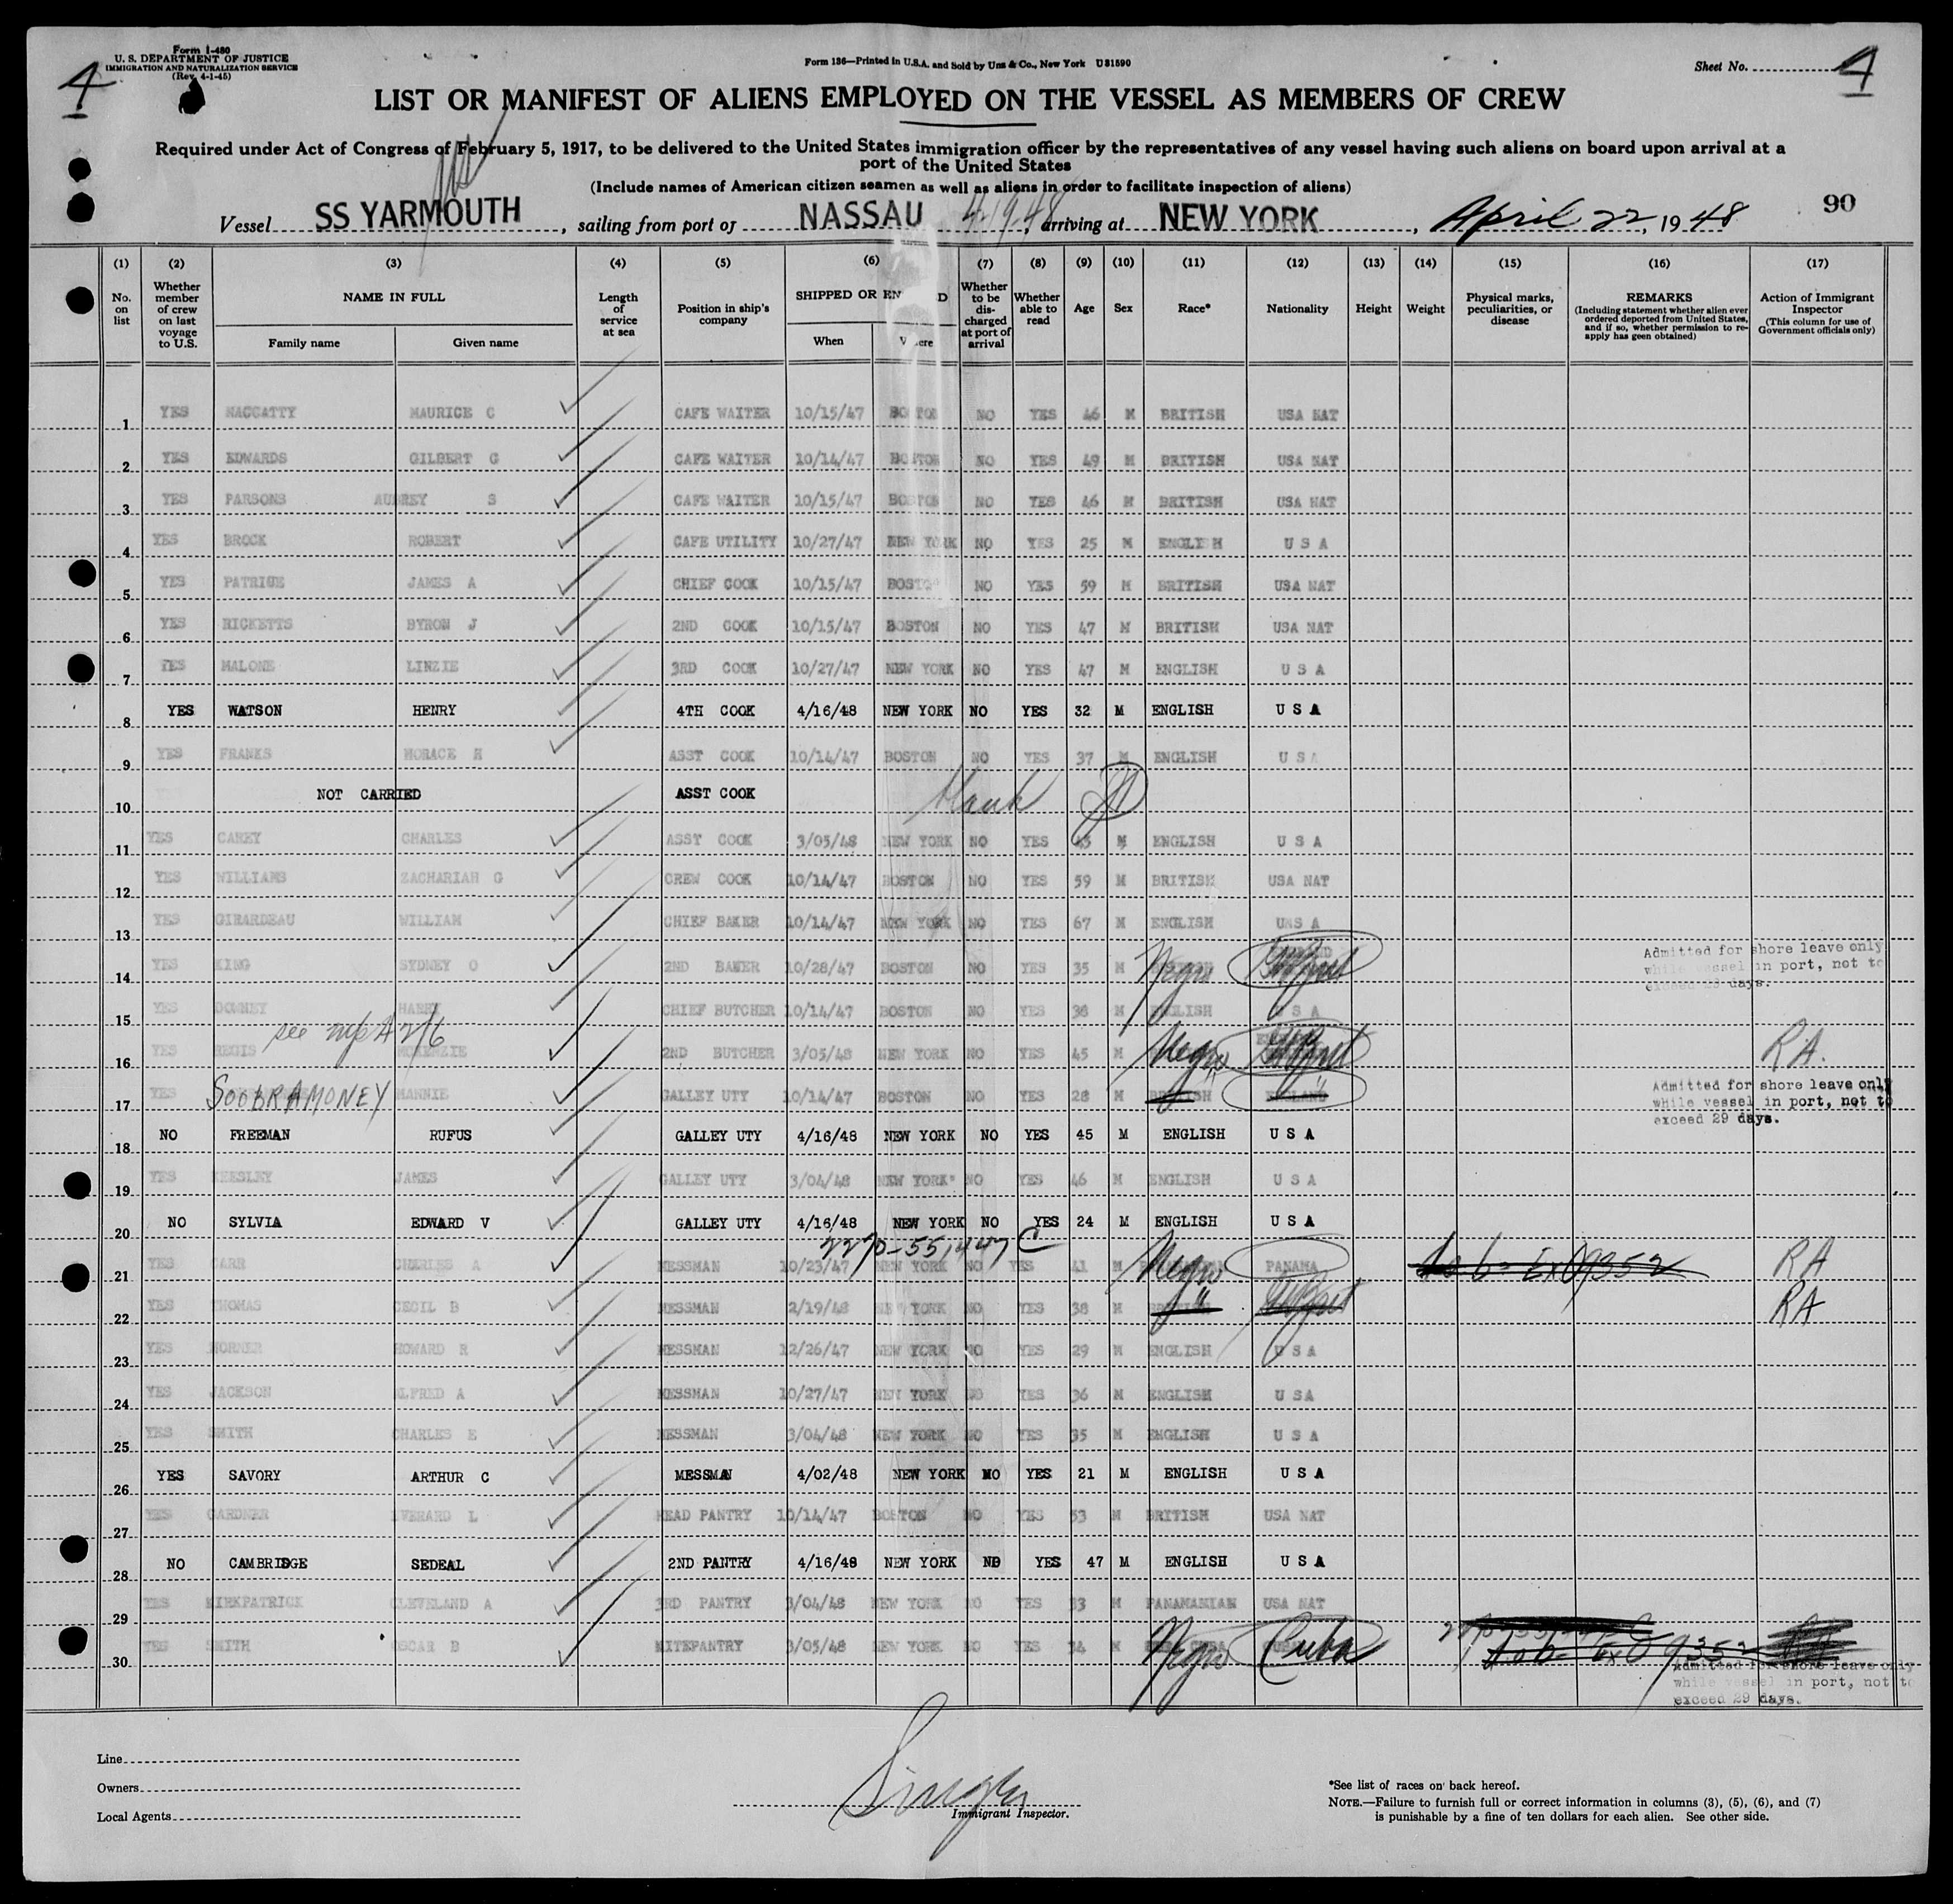 Form I-480
U. S. DEPARTMENT OF JUSTICE
IMMIGRATION AND NATURALIZATION SERVICE
(Rev. 4-1-45)
Form 136—Printed in U.S.A. and Sold by Unz & Co., New York U31590
Sheet No. 4
4
LIST OR MANIFEST OF ALIENS EMPLOYED ON THE VESSEL AS MEMBERS OF CREW
Required under Act of Congress of February 5, 1917, to be delivered to the United States immigration officer by the representatives of any vessel having such aliens on board upon arrival at a
port of the United States
(Include names of American citizen seamen as well as aliens in order to facilitate inspection of aliens)
90
Vessel SS YARMOUTH, sailing from port of NASSAU 4-19-48, arriving at NEW YORK, April 22, 1948
(1) (2) (3) (4) (5) (6) (7) (8) (9) (10) (11) (12) (13) (14) (15) (16) (17)
No. on list
Whether member of crew on last voyage to U.S.
NAME IN FULL
Family name Given name
Length of service at sea
Position in ship's company
SHIPPED OR
When
Whether to be discharged at port of arrival
Whether able to read
Age Sex Race* Nationality Height Weight
Physical marks, peculiarities, or disease
REMARKS
(Including statement whether alien ever ordered deported from United States, and if so, whether permission to re-apply has geen obtained)
Action of Immigrant Inspector
(This column for use of Government officials only)
1 YES MAURICE C CAFE WAITER 10/15/47 BOSTON NO YES 46 M BRITISH USA NAT
2 YES EDWARDS GILBERT G CAFE WAITER 10/14/47 BOSTON NO YES 49 M BRITISH USA NAT
3 YES PARSONS AUBREY S CAFE WAITER 10/15/47 BOSTON NO YES 46 M BRITISH USA NAT
4 YES BROCK ROBERT CAFE UTILITY 10/27/47 NEW YORK NO YES 25 M ENGLISH U S A
5 YES JAMES A CHIEF COOK 10/15/47 BOSTON NO YES 59 M BRITISH USA NAT
6 YES RICKETTS BYRON J 2ND COOK 10/15/47 BOSTON NO YES 47 M BRITISH USA NAT
7 YES MALONE LINZIE 3RD COOK 10/27/47 NEW YORK NO YES 47 M ENGLISH U S A
8 YES WATSON HENRY 4TH COOK 4/16/48 NEW YORK NO YES 32 M ENGLISH U S A
9 YES FRANKS HORACE H ASST COOK 10/14/47 BOSTON NO YES 37 M ENGLISH U S A
10 NOT CARRIED ASST COOK blank
11 YES CAREY CHARLES ASST COOK 3/05/48 NEW YORK NO YES M ENGLISH U S A
12 YES WILLIAMS ZACHARIAH G CREW COOK 10/14/47 BOSTON NO YES 59 M BRITISH USA NAT
13 YES GIRARDEAU WILLIAM CHIEF BAKER 10/14/47 NEW YORK NO YES 67 M ENGLISH U S A
14 YES KING SYDNEY O 2ND BAKER 10/28/47 BOSTON NO YES 35 M Negro Admitted for shore leave only
while vessel in port, not to
exceed 29 days.
15 YES DOWNEY HARRY CHIEF BUTCHER 10/14/47 BOSTON NO YES 38 M ENGLISH U S A
see
16 YES REGIS MCKENZIE 2ND BUTCHER 3/05/48 NEW YORK NO YES 45 M Negro RA.
17 YES SOOBRAMONEY MANNIE GALLEY UTY 10/14/47 BOSTON NO YES 28 M " BRITISH " ENGLAND Admitted for shore leave only
while vessel in port, not to
exceed 29 days.
18 NO FREEMAN RUFUS GALLEY UTY 4/16/48 NEW YORK NO YES 45 M ENGLISH U S A
19 YES JAMES GALLEY UTY 3/04/48 NEW YORK NO YES 46 M ENGLISH U S A
20 NO SYLVIA EDWARD V GALLEY UTY 4/16/48 NEW YORK NO YES 24 M ENGLISH U S A
2270-551447 C
21 YES CARR CHARLES A MESSMAN 10/23/47 NEW YORK NO YES 41 M Negro PANAMA RA
22 YES THOMAS CECIL B MESSMAN 2/19/48 NEW YORK NO YES 38 M " RA
23 YES HORNER HOWARD R MESSMAN 12/26/47 NEW YORK NO YES 29 M ENGLISH U S A
24 YES JACKSON ALFRED A MESSMAN 10/27/47 NEW YORK NO YES 36 M ENGLISH U S A
25 YES SMITH CHARLES E MESSMAN 3/04/48 NEW YORK NO YES 35 M ENGLISH U S A
26 YES SAVORY ARTHUR C MESSMAN 4/02/48 NEW YORK NO YES 21 M ENGLISH U S A
27 YES GARDNER EVERARD L HEAD PANTRY 10/14/47 BOSTON NO YES 53 M BRITISH USA NAT
28 NO CAMBRIDGE SEDEAL 2ND PANTRY 4/16/48 NEW YORK NO YES 47 M ENGLISH U S A
29 YES KIRKPATRICK CLEVELAND A 3RD PANTRY 3/04/48 NEW YORK NO YES 33 M PANAMANIAN USA NAT
30 YES SMITH OSCAR B NITEPANTRY 3/05/48 NEW YORK NO YES 34 M Negro Cuba
Admitted for shore leave only
while vessel in port, not to
exceed 29 days.
Line
Owners
Local Agents
Immigrant Inspector.
*See list of races on back hereof.
NOTE.—Failure to furnish full or correct information in columns (3), (5), (6), and (7)
is punishable by a fine of ten dollars for each alien. See other side.